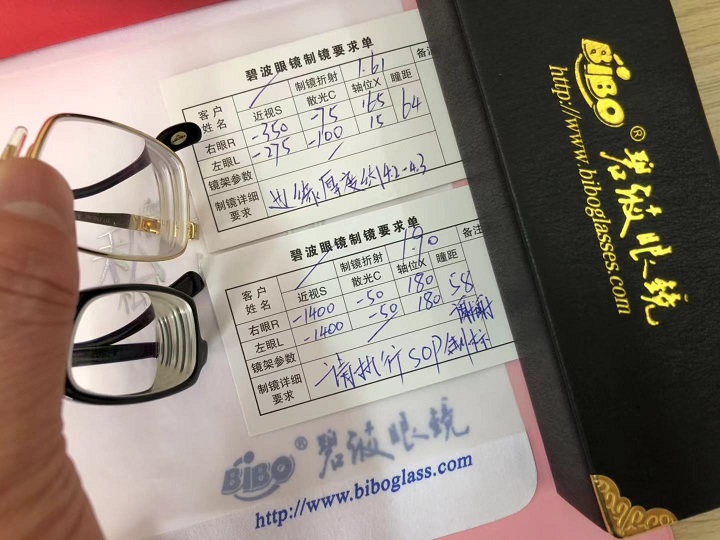 碧波眼镜制镜要求单
客户姓名 制镜折射 1.61 备注
近视S 散光C 轴位X 瞳距
右眼R -350 -75 165 64
左眼L -275 -100 15
镜架参数
制镜详细要求 边缘厚度约4.2-4.3
碧波眼镜制镜要求单
客户姓名 制镜折射 1.90 备注
近视S 散光C 轴位X 瞳距
右眼R -1400 -50 180 58
左眼L -1400 -50 180 谢谢
镜架参数
制镜详细要求 请执行SOP制标
BiBO® 碧波眼镜
http://www.biboglass.com
BiBO® 碧波眼镜
http://www.biboglasses.com